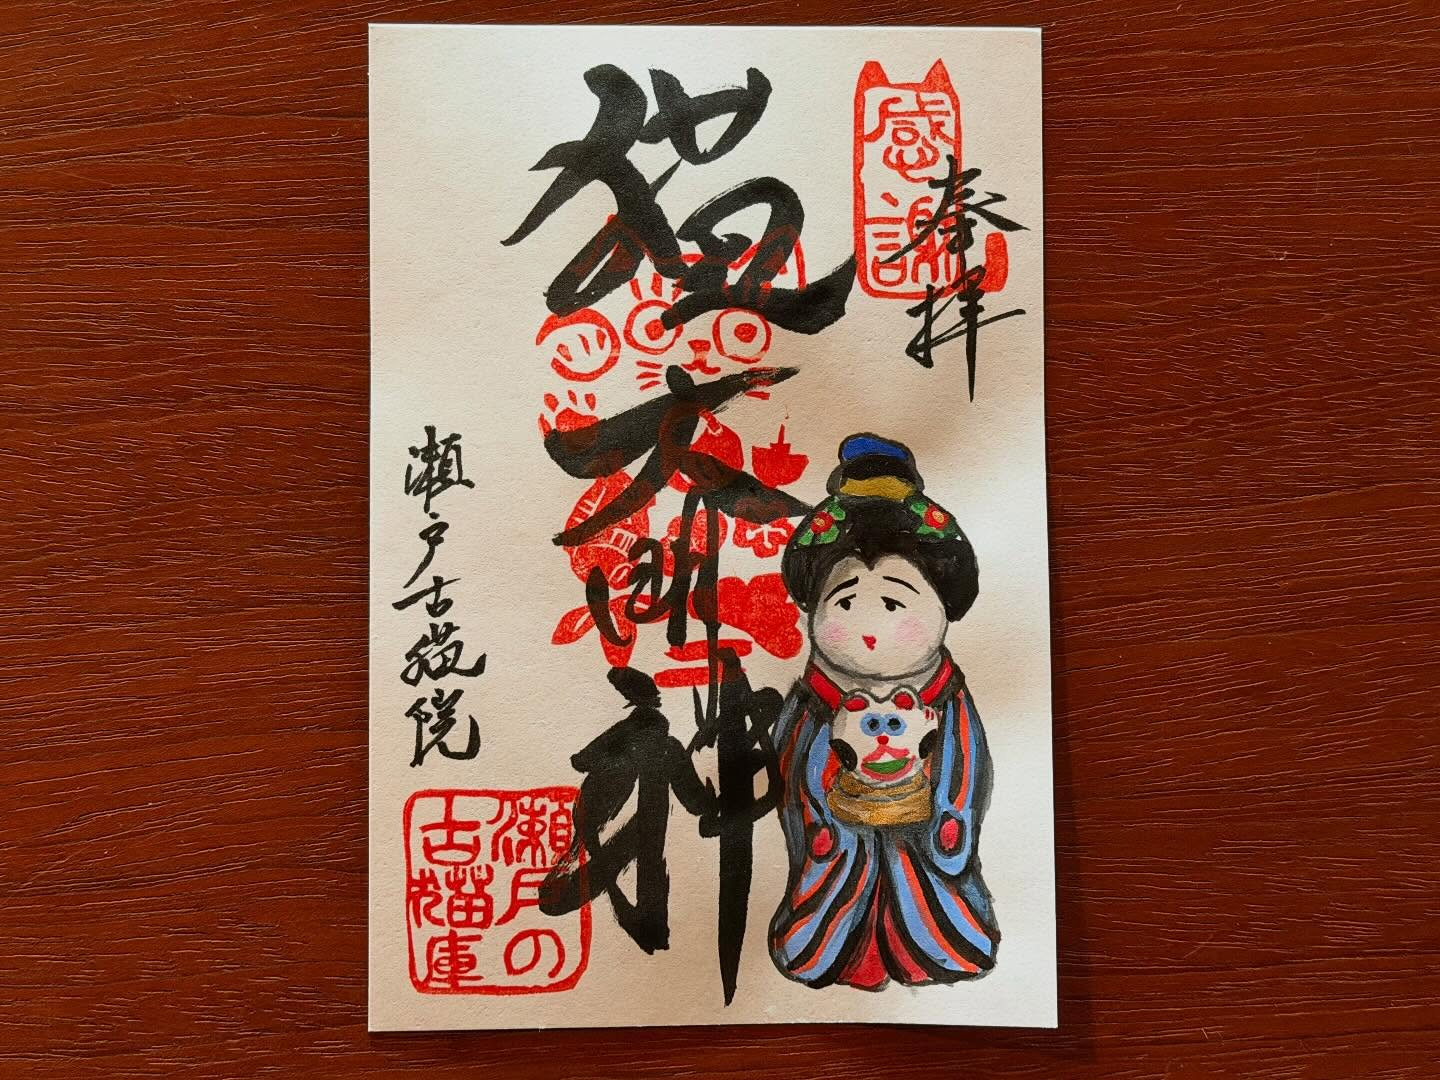 感謝
奉拝
猫大明神
瀬戸古猫院
瀬戸の
古猫庫